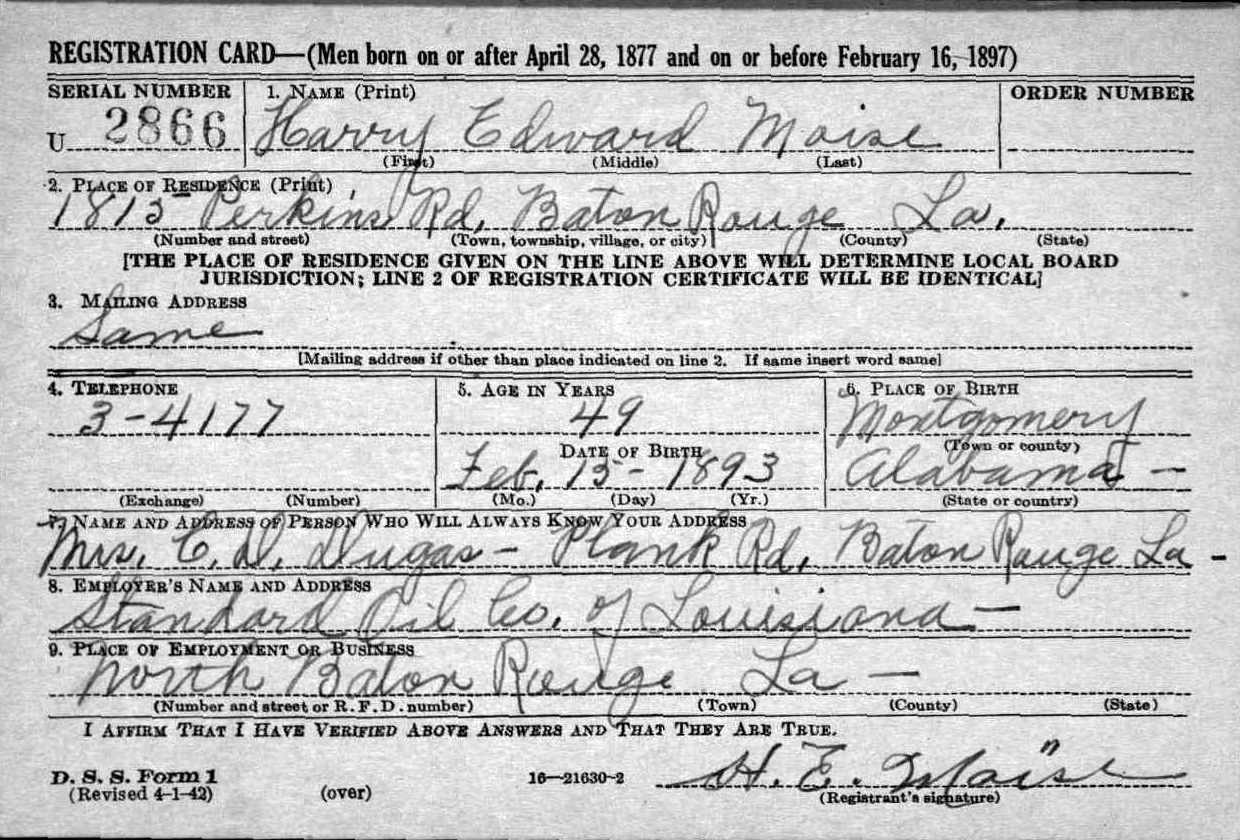 REGISTRATION CARD—(Men born on or after April 28, 1877 and on or before February 16, 1897)
SERIAL NUMBER 1. NAME (Print) ORDER NUMBER
U 2866 Harry Edward Moise
(First) (Middle) (Last)
2. PLACE OF RESIDENCE (Print)
1815 Perkins Rd, Baton Rouge La.
(Number and street) (Town, township, village, or city) (County) (State)
[THE PLACE OF RESIDENCE GIVEN ON THE LINE ABOVE WILL DETERMINE LOCAL BOARD
JURISDICTION; LINE 2 OF REGISTRATION CERTIFICATE WILL BE IDENTICAL]
3. MAILING ADDRESS
Same
[Mailing address if other than place indicated on line 2. If same insert word same]
4. TELEPHONE 5. AGE IN YEARS 6. PLACE OF BIRTH
3-4177 49 Montgomery
DATE OF BIRTH (Town or county)
Feb. 15 - 1893 Alabama -
(Exchange) (Number) (Mo.) (Day) (Yr.) (State or country)
7. NAME AND ADDRESS OF PERSON WHO WILL ALWAYS KNOW YOUR ADDRESS
Mrs. C. D. Dugas - Plank Rd, Baton Rouge La -
8. EMPLOYER'S NAME AND ADDRESS
Standard Oil Co. of Louisiana -
9. PLACE OF EMPLOYMENT OR BUSINESS
North Baton Rouge La -
(Number and street or R. F. D. number) (Town) (County) (State)
I AFFIRM THAT I HAVE VERIFIED ABOVE ANSWERS AND THAT THEY ARE TRUE.
D. S. S. Form 1 16—21630-2 H. E. Moïse
(Revised 4-1-42) (over) (Registrant's signature)